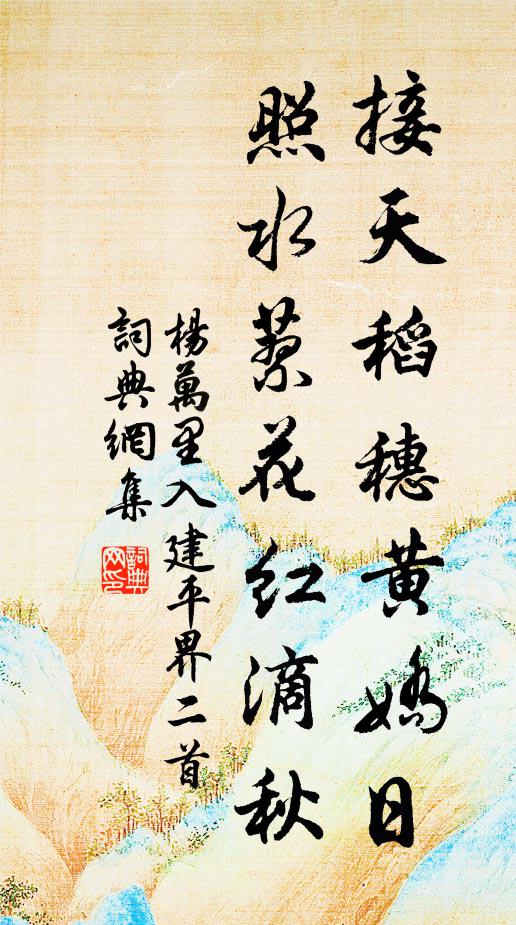 接天稻穗黃嬌日
照水蓼花紅滴秋
楊萬里入建平界二首
詞典網集
詞典网印